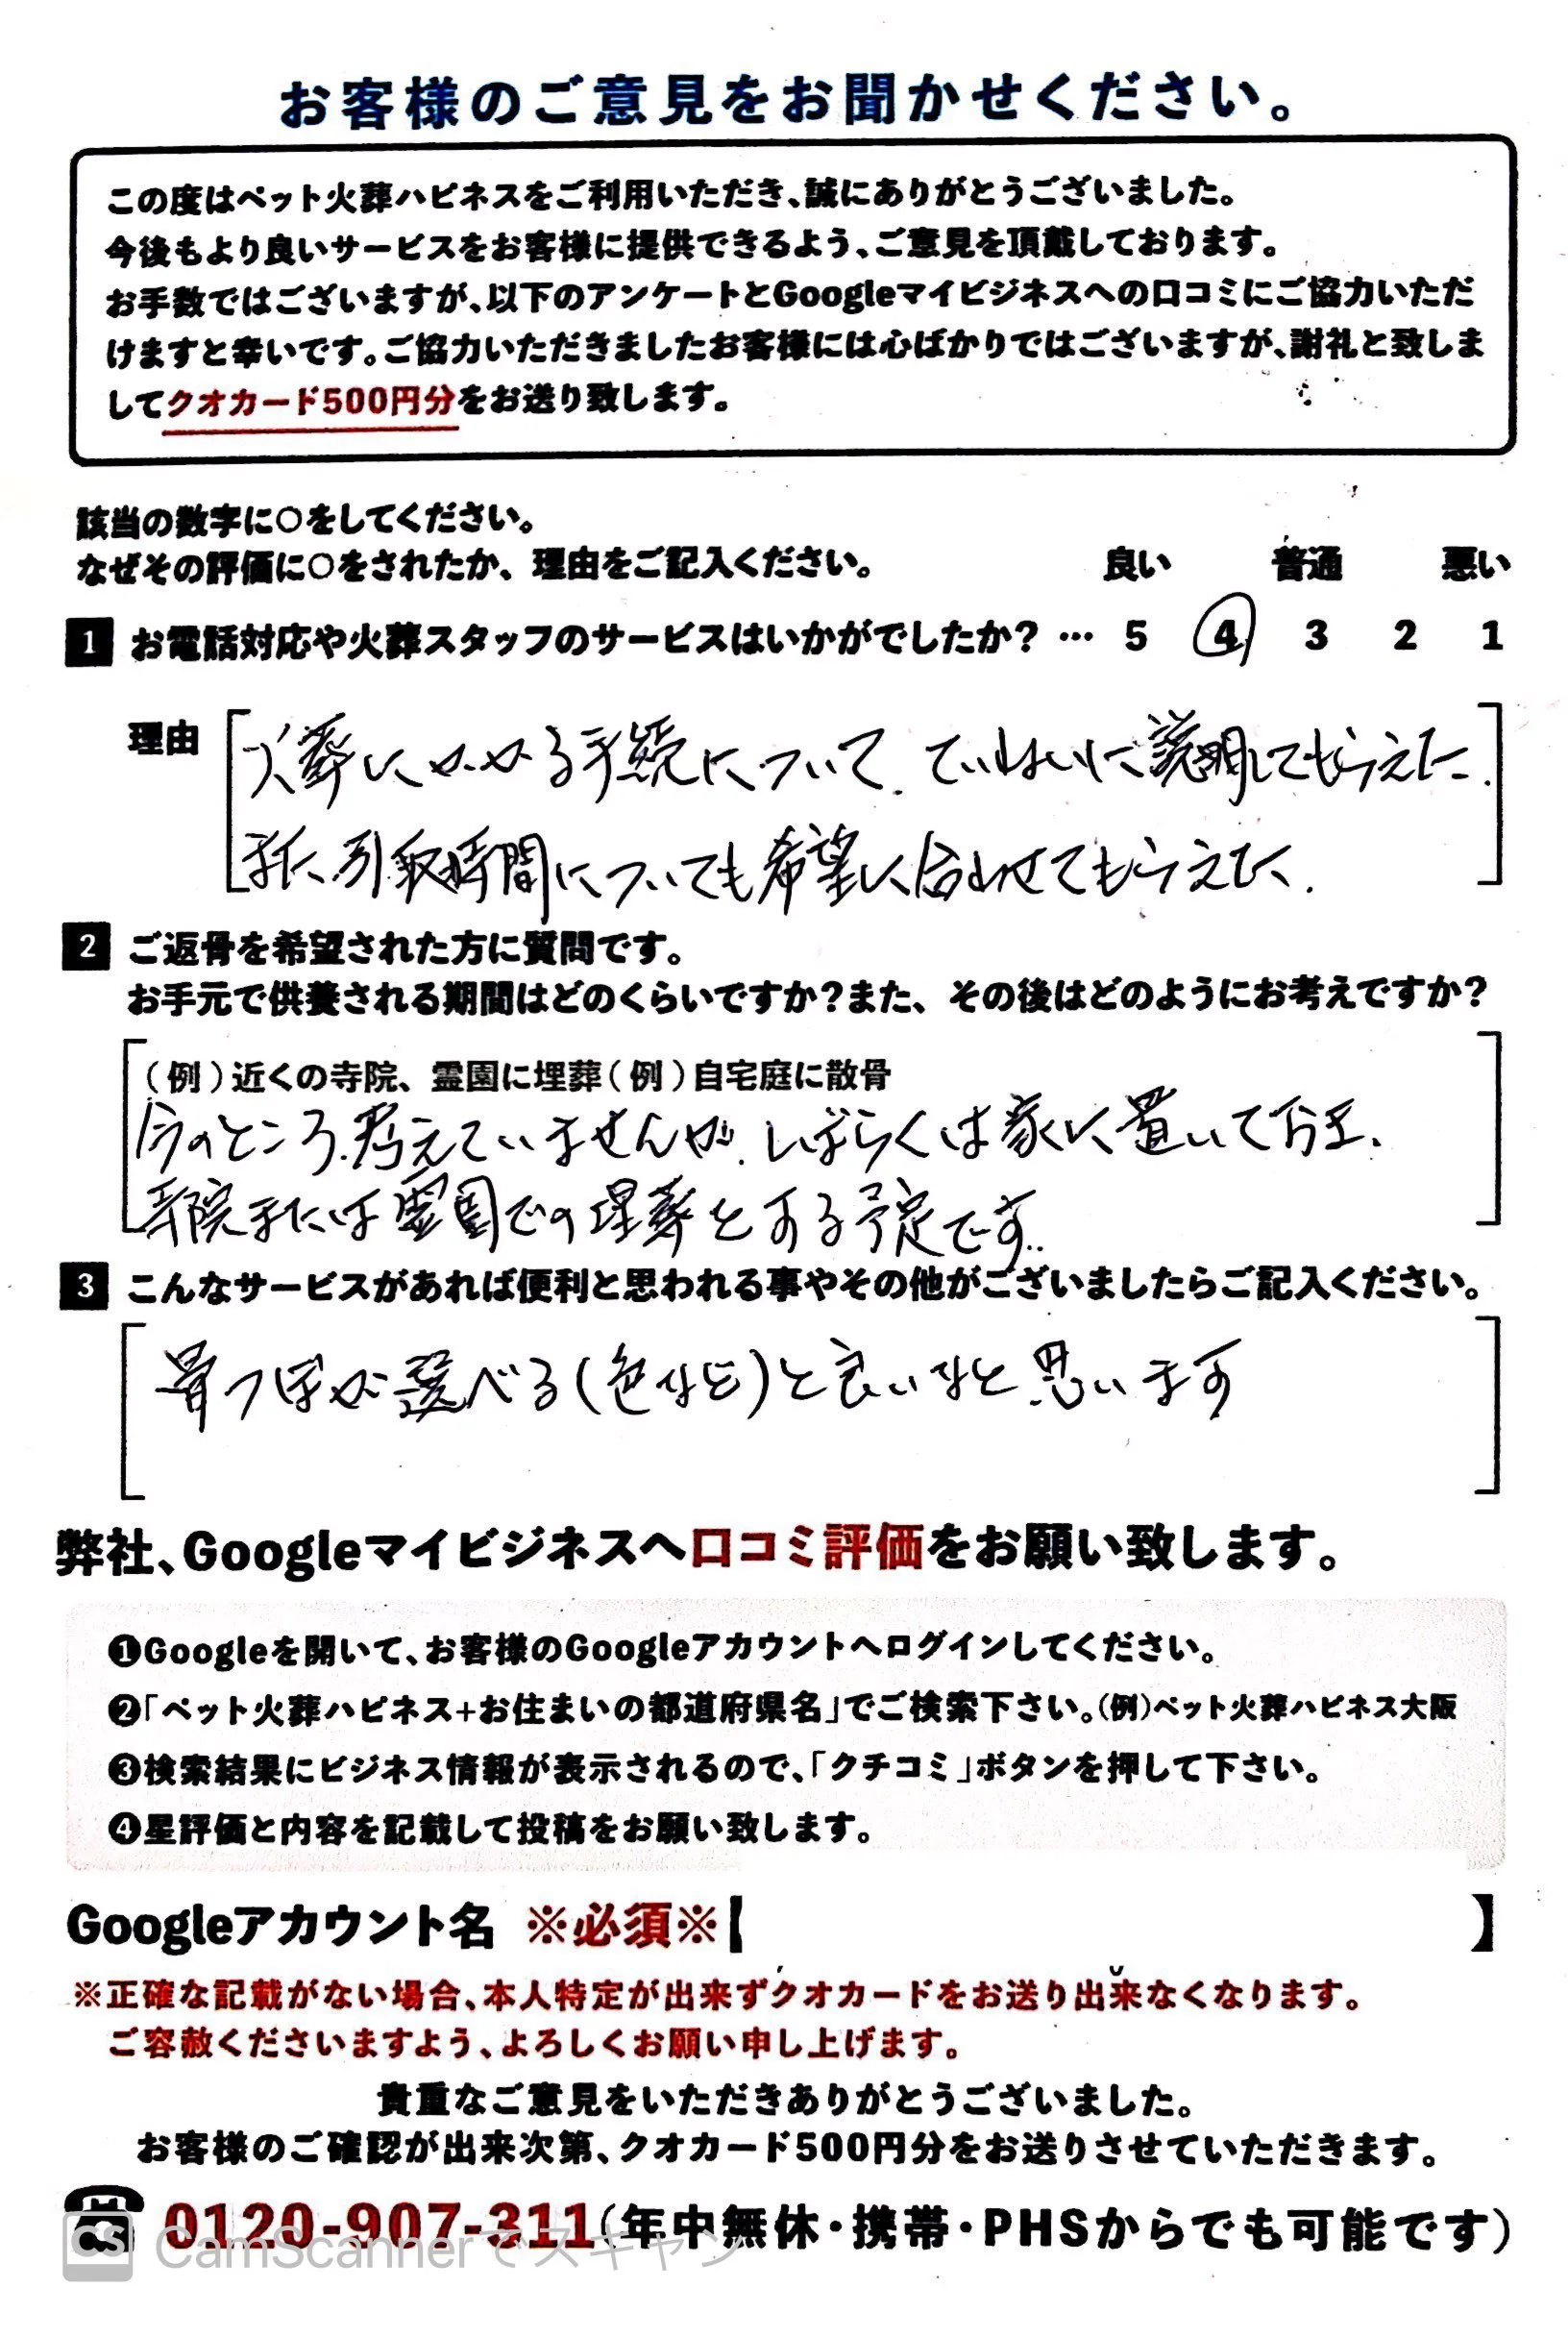 お客様のご意見をお聞かせください。
この度はペット火葬ハピネスをご利用いただき、誠にありがとうございました。
今後もより良いサービスをお客様に提供できるよう、ご意見を頂戴しております。
お手数ではございますが、以下のアンケートとGoogleマイビジネスへの口コミにご協力いただ
けますと幸いです。ご協力いただきましたお客様には心ばかりではございますが、謝礼と致しま
してクオカード500円分をお送り致します。
該当の数字に○をしてください。
なぜその評価に○をされたか、理由をご記入ください。 良い 普通 悪い
1 お電話対応や火葬スタッフのサービスはいかがでしたか？ … 5 4 3 2 1
理由 火葬にかかる手続について、ていねいに説明してもらえた。
また、引取時間についても希望に合わせてもらえた。
2 ご返骨を希望された方に質問です。
お手元で供養される期間はどのくらいですか？また、その後はどのようにお考えですか？
（例）近くの寺院、霊園に埋葬（例）自宅庭に散骨
今のところ、考えていませんが、しばらくは家に置いて
寺院または霊園での埋葬をする予定です。
3 こんなサービスがあれば便利と思われる事やその他がございましたらご記入ください。
骨つぼが選べる(色など)と良いなと思います
弊社、Googleマイビジネスへ口コミ評価をお願い致します。
❶Googleを開いて、お客様のGoogleアカウントへログインしてください。
❷「ペット火葬ハピネス+お住まいの都道府県名」でご検索下さい。(例)ペット火葬ハピネス大阪
❸検索結果にビジネス情報が表示されるので、「クチコミ」ボタンを押して下さい。
❹星評価と内容を記載して投稿をお願い致します。
Googleアカウント名 ※必須※【 】
※正確な記載がない場合、本人特定が出来ずクオカードをお送り出来なくなります。
ご容赦くださいますよう、よろしくお願い申し上げます。
貴重なご意見をいただきありがとうございました。
お客様のご確認が出来次第、クオカード500円分をお送りさせていただきます。
0120-907-311(年中無休・携帯・PHSからでも可能です)
CS CamScannerでスキャン